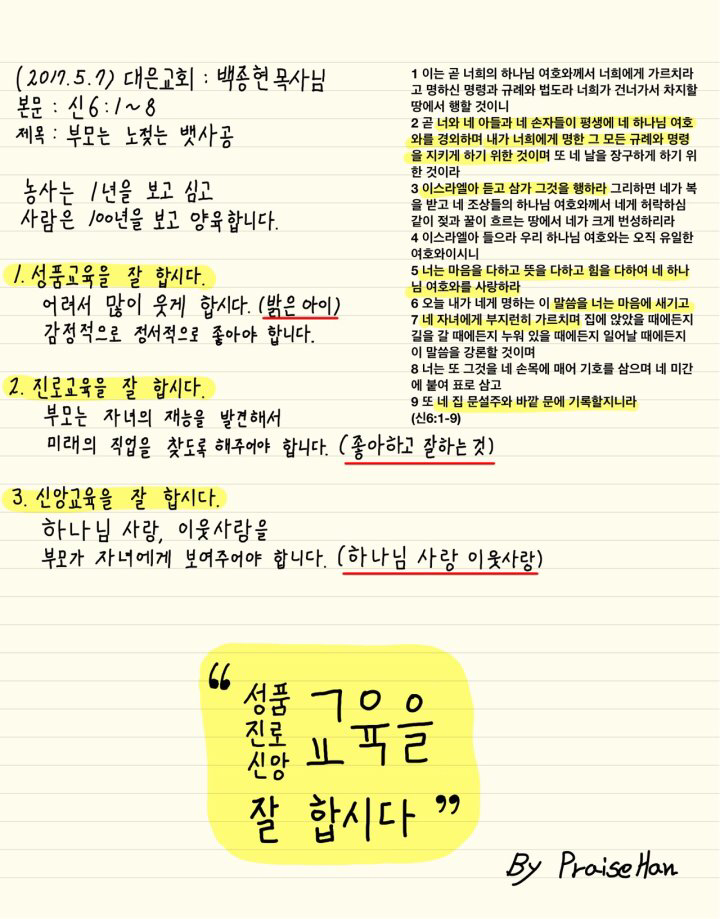 (2017.5.7) 대은교회 : 백종현 목사님
본문 : 신6:1~8
제목 : 부모는 노젖는 뱃사공
농사는 1년을 보고 심고
사람은 100년을 보고 양육합니다.
1. 성품교육을 잘 합시다.
어려서 많이 웃게 합시다. (밝은 아이)
감정적으로 정서적으로 좋아야 합니다.
2. 진로교육을 잘 합시다.
부모는 자녀의 재능을 발견해서
미래의 직업을 찾도록 해주어야 합니다. (좋아하고 잘하는 것)
3. 신앙교육을 잘 합시다.
하나님 사랑, 이웃사랑을
부모가 자녀에게 보여주어야 합니다. (하나님 사랑 이웃사랑)
1 이는 곧 너희의 하나님 여호와께서 너희에게 가르치라
고 명하신 명령과 규례와 법도라 너희가 건너가서 차지할
땅에서 행할 것이니
2 곧 너와 네 아들과 네 손자들이 평생에 네 하나님 여호
와를 경외하며 내가 너희에게 명한 그 모든 규례와 명령
을 지키게 하기 위한 것이며 또 네 날을 장구하게 하기 위
한 것이라
3 이스라엘아 듣고 삼가 그것을 행하라 그리하면 네가 복
을 받고 네 조상들의 하나님 여호와께서 네게 허락하심
같이 젖과 꿀이 흐르는 땅에서 네가 크게 번성하리라
4 이스라엘아 들으라 우리 하나님 여호와는 오직 유일한
여호와이시니
5 너는 마음을 다하고 뜻을 다하고 힘을 다하여 네 하나
님 여호와를 사랑하라
6 오늘 내가 네게 명하는 이 말씀을 너는 마음에 새기고
7 네 자녀에게 부지런히 가르치며 집에 앉았을 때에든지
길을 갈 때에든지 누워 있을 때에든지 일어날 때에든지
이 말씀을 강론할 것이며
8 너는 또 그것을 네 손목에 매어 기호를 삼으며 네 미간
에 붙여 표로 삼고
9 또 네 집 문설주와 바깥 문에 기록할지니라
(신6:1-9)
“ 성품
진로
신앙
교육을
잘 합시다 ”
By PraiseHan